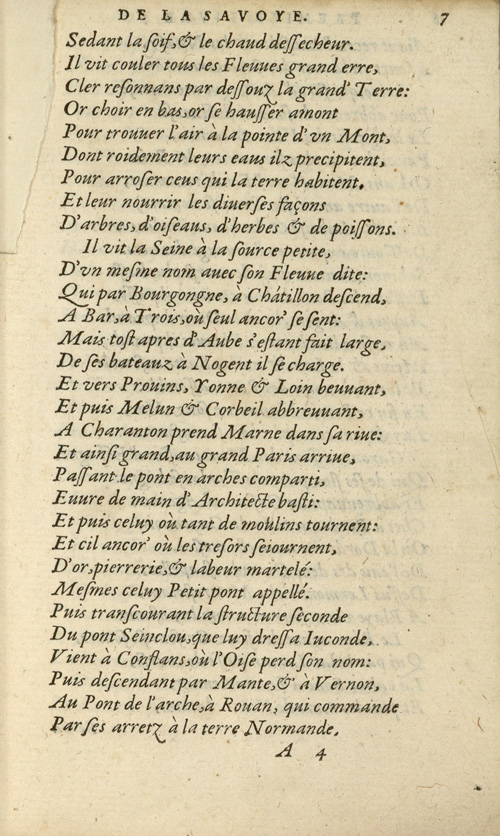 DE LA SAVOYE. 7
Sedant la ſoif, & le chaud deſſecheur.
Il vit couler tous les Fleuues grand erre,
Cler reſonnans par deſſouz la grand' Terre:
Or choir en bas, or ſe hauſſer amont
Pour trouuer l'air à la pointe d'vn Mont,
Dont roidement leurs eaus ilz precipitent,
Pour arroſer ceus qui la terre habitent.
Et leur nourrir les diuerſes façons
D'arbres, d'oiſeaus, d'herbes & de poiſſons.
Il vit la Seine à la ſource petite,
D'vn meſme nom auec ſon Fleuue dite:
Qui par Bourgongne, à Chátillon deſcend,
A Bar, à Trois, où ſeul ancor' ſe ſent:
Mais toſt apres d'Aube s'eſtant fait large,
De ſes bateauz à Nogent il ſe charge.
Et vers Prouins, Yonne & Loin beuuant,
Et puis Melun & Corbeil abbreuuant,
A Charanton prend Marne dans ſa riue:
Et ainſi grand, au grand Paris arriue,
Paſſant le pont en arches comparti,
Euure de main d'Architecte baſti:
Et puis celuy où tant de moulins tournent:
Et cil ancor' où les treſors ſeiournent,
D'or, pierrerie, & labeur martelé:
Meſmes celuy Petit pont appellé.
Puis tranſcourant la ſtructure ſeconde
Du pont Seinclou, que luy dreſſa Iuconde,
Vient à Conflans, où l'Oiſe perd ſon nom:
Puis deſcendant par Mante, & à Vernon,
Au Pont de l'arche, à Rouan, qui commande
Par ſes arretz à la terre Normande.
A 4